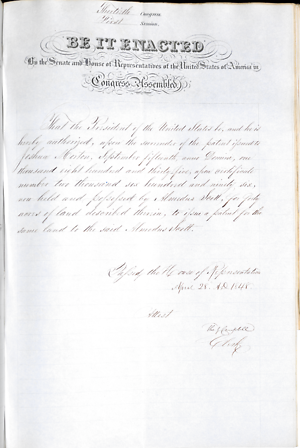 Thirtieth Congress
First Session
BE IT ENACTED
By the Senate and House of Representatives of the United States of America in
Congress Assembled,
That the President of the United States be, and he is
hereby authorized, upon the surrender of the patent issued to
Joshua Morton, September fifteenth, anno Domini, one
thousand eight hundred and thirty five, upon certificate
number two thousand six hundred and ninety six,
now held and possessed by Amedus Scott, for forty
acres of land described therein, to issue a patent for the
same land to the said Amedus Scott.
Passed the House of Representatives
April 28. AD. 1848.
Attest
Tho. J. Campbell
Clerk